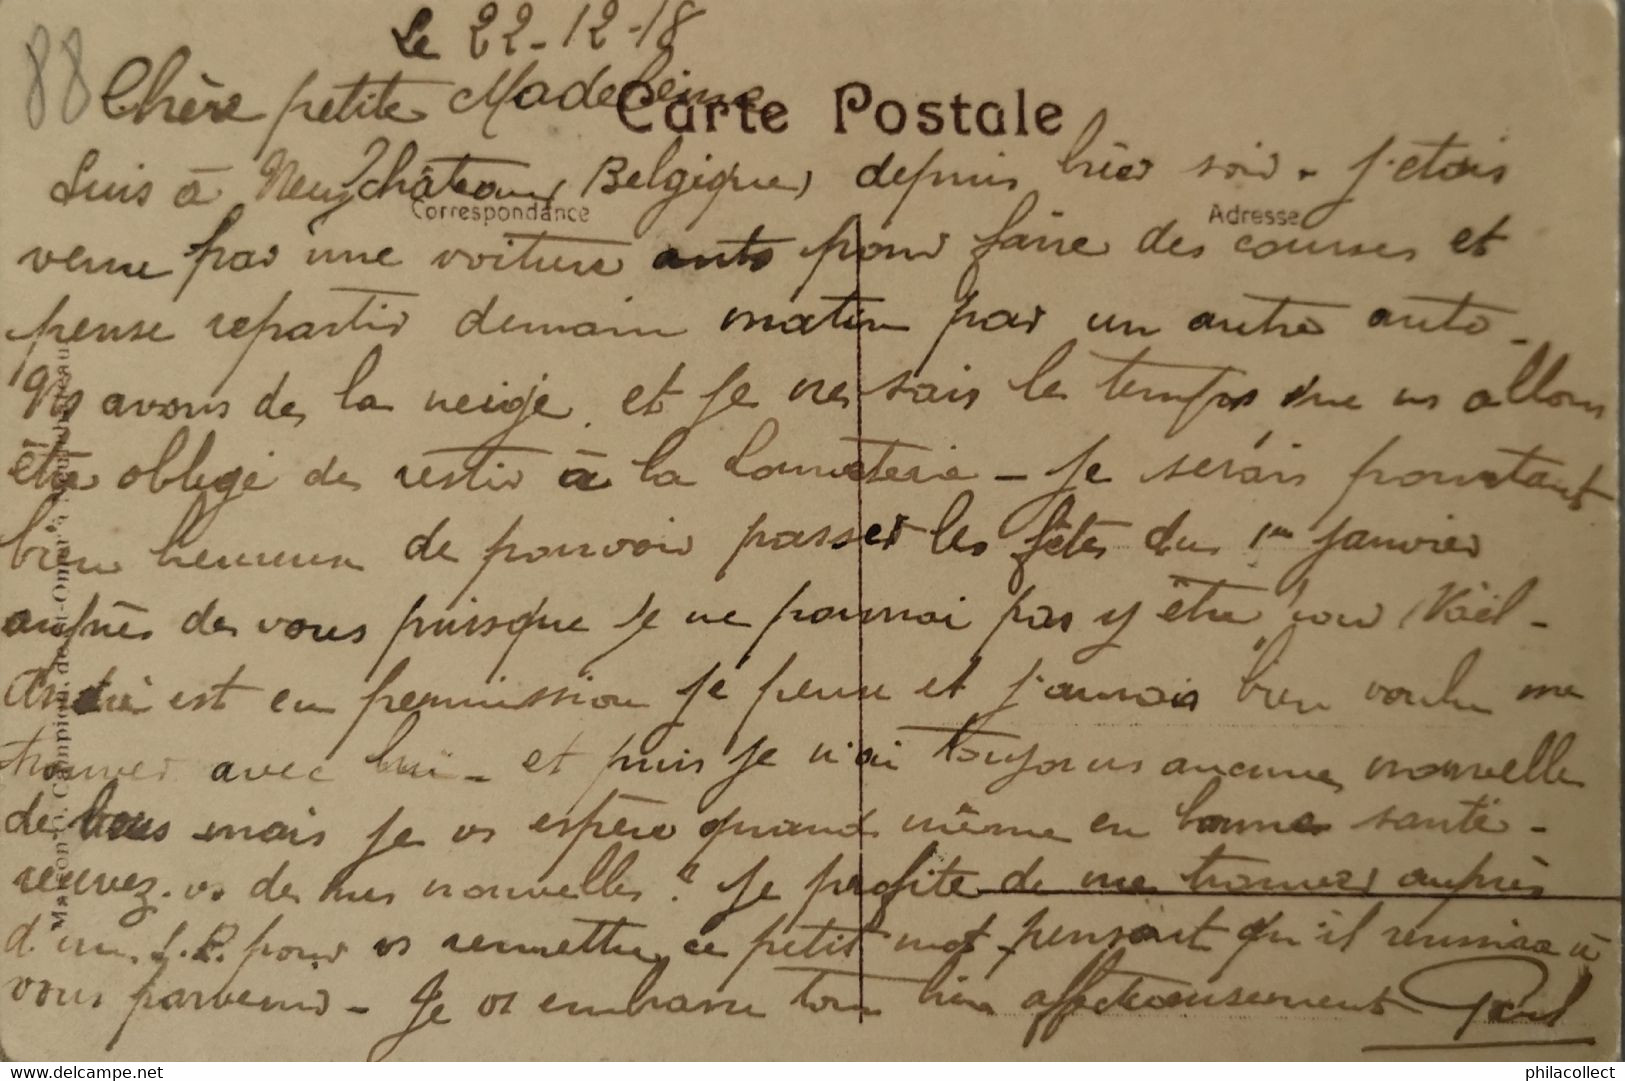 88
Le 22-12-18
Chère petite Madeleine
Carte Postale
Suis à Neufchâteau Belgique, depuis hier soir. J'etais
Correspondance
Adresse
venu par une voiture auto pour faire des courses et
pense repartir demain matin par un autre auto -
Ns avons de la neige. et je ne sais le temps que ns allons
être obligé de rester à la Louveterie - Je serais pourtant
bien heureux de pouvoir passer les fêtes du 1er janvier
auprès de vous puisque je ne pourrai pas y être pour Noël -
André est en permission je pense et j'aurais bien voulu me
trouver avec lui - et puis je n'ai toujours aucunes nouvelles
de vous mais je vs espère quand même en bonne santé -
recevez-vs de mes nouvelles ? Je profite de me trouver auprès
d'un pour vs remettre ce petit mot pensant qu'il réussira à
vous parvenir - Je vs embrasse tous bien affectueusement Paul
www.delcampe.net
philacollect